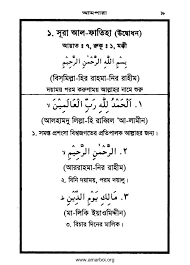 আমপারা
১. সূরা আল-ফাতিহা (উদ্বোধন)
আয়াত : ৭, রুকু : ১, মক্কী
بِسْمِ اللَّهِ الرَّحْمَٰنِ الرَّحِيمِ
(বিসমিল্লা-হির রাহমা-নির রাহীম)
দয়াময় পরম করুণাময় আল্লাহর নামে শুরু
١. اَلْحَمْدُ لِلَّهِ رَبِّ الْعَالَمِينَ ٧
(আলহামদু লিল্লা-হি রাব্বিল 'আ-লামীন)
১. সমস্ত প্রশংসা বিশ্বজগতের প্রতিপালক আল্লাহর জন্য।
٢. اَلرَّحْمَٰنِ الرَّحِيمِ ٧
(আররাহমা-নির রাহীম)
২. যিনি দয়াময়, পরম দয়ালু।
٣. مَالِكِ يَوْمِ الدِّينِ
(মা-লিকি ইয়াওমিদ্দীন)
৩. বিচার দিনের মালিক।
www.amarboi.org